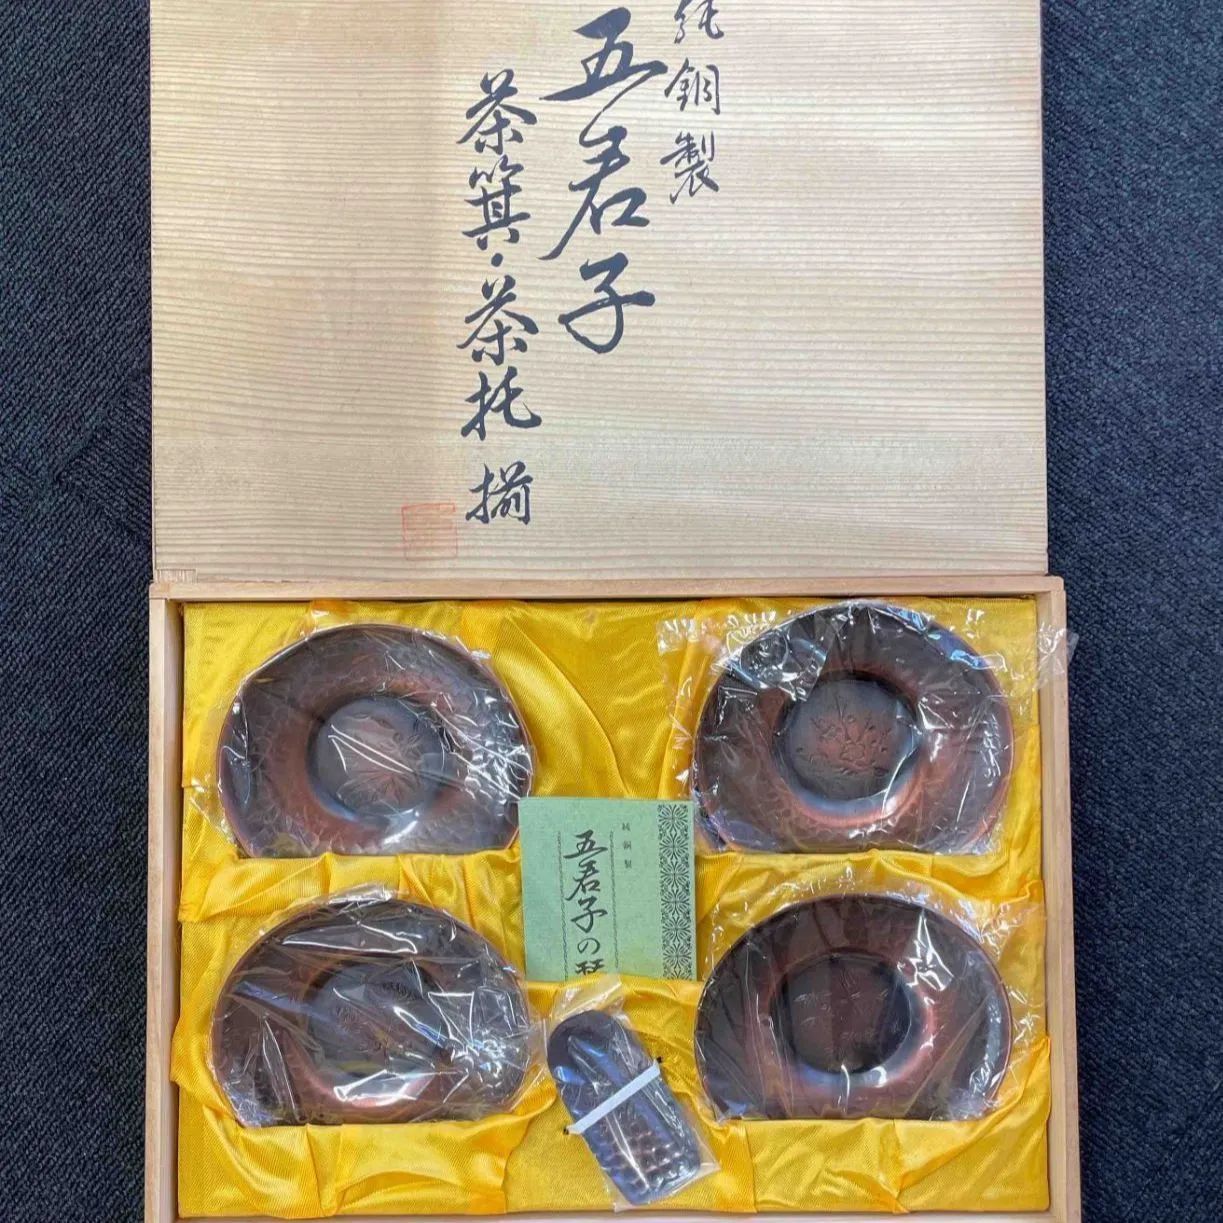 純銅製
五君子
茶箕・茶托揃
純銅製
五君子の栞